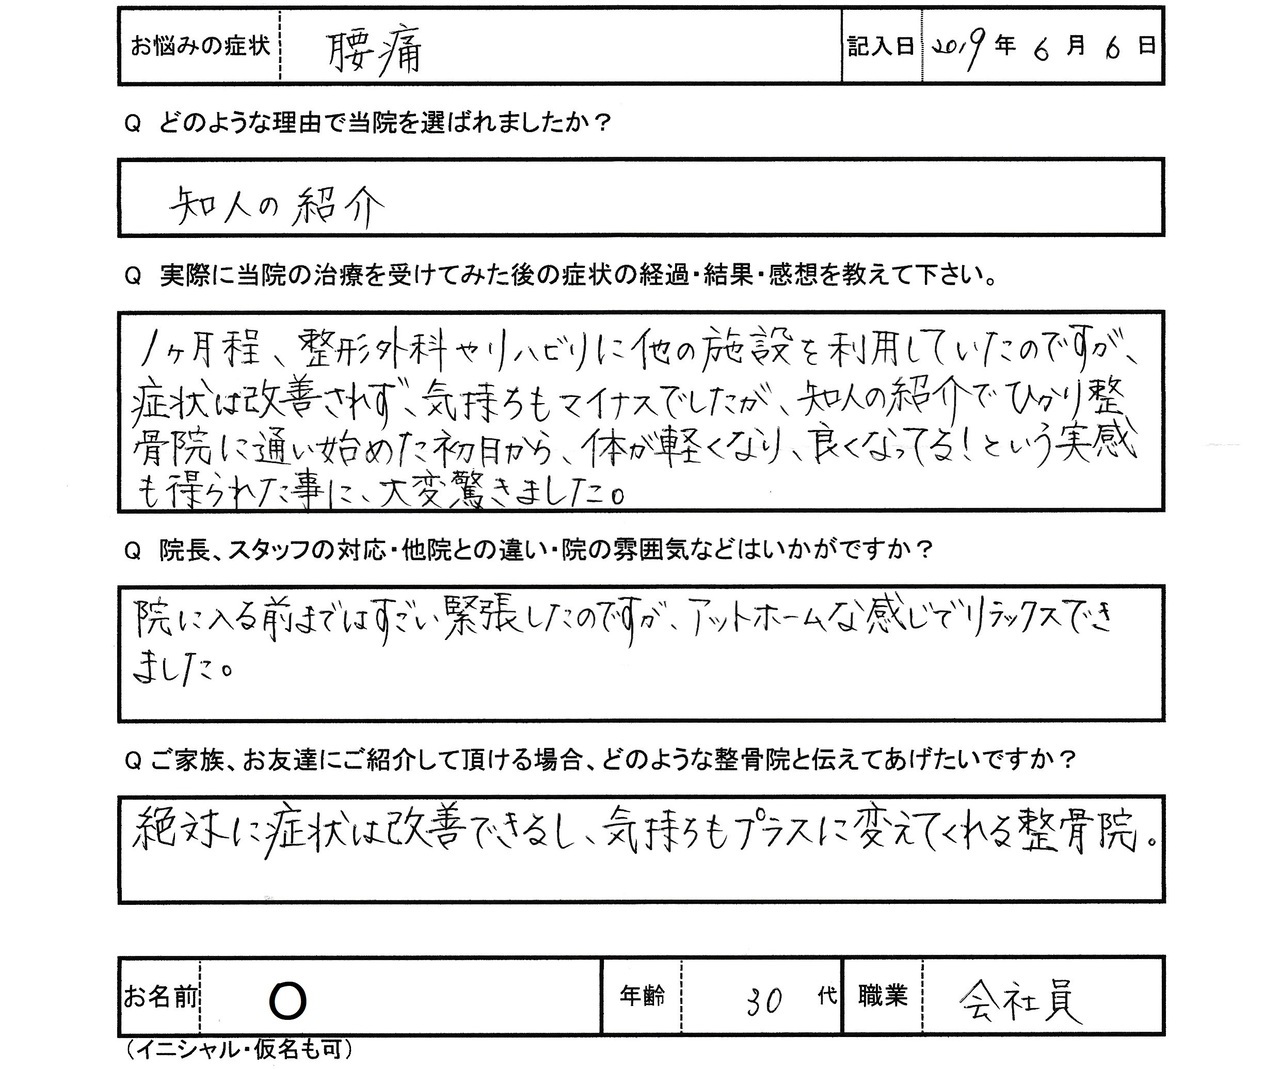 お悩みの症状 腰痛 記入日 2019年 6月 6日
Q どのような理由で当院を選ばれましたか？
知人の紹介
Q 実際に当院の治療を受けてみた後の症状の経過・結果・感想を教えて下さい。
1ヶ月程、整形外科やリハビリに他の施設を利用していたのですが、
症状は改善されず、気持ちもマイナスでしたが、知人の紹介でひかり整
骨院に通い始めた初日から、体が軽くなり、良くなってる！という実感
も得られた事に、大変驚きました。
Q 院長、スタッフの対応・他院との違い・院の雰囲気などはいかがですか？
院に入る前まではすごい緊張したのですが、アットホームな感じでリラックスでき
ました。
Q ご家族、お友達にご紹介して頂ける場合、どのような整骨院と伝えてあげたいですか？
絶対に症状は改善できるし、気持ちもプラスに変えてくれる整骨院。
お名前 O 年齢 30代 職業 会社員
（イニシャル・仮名も可）